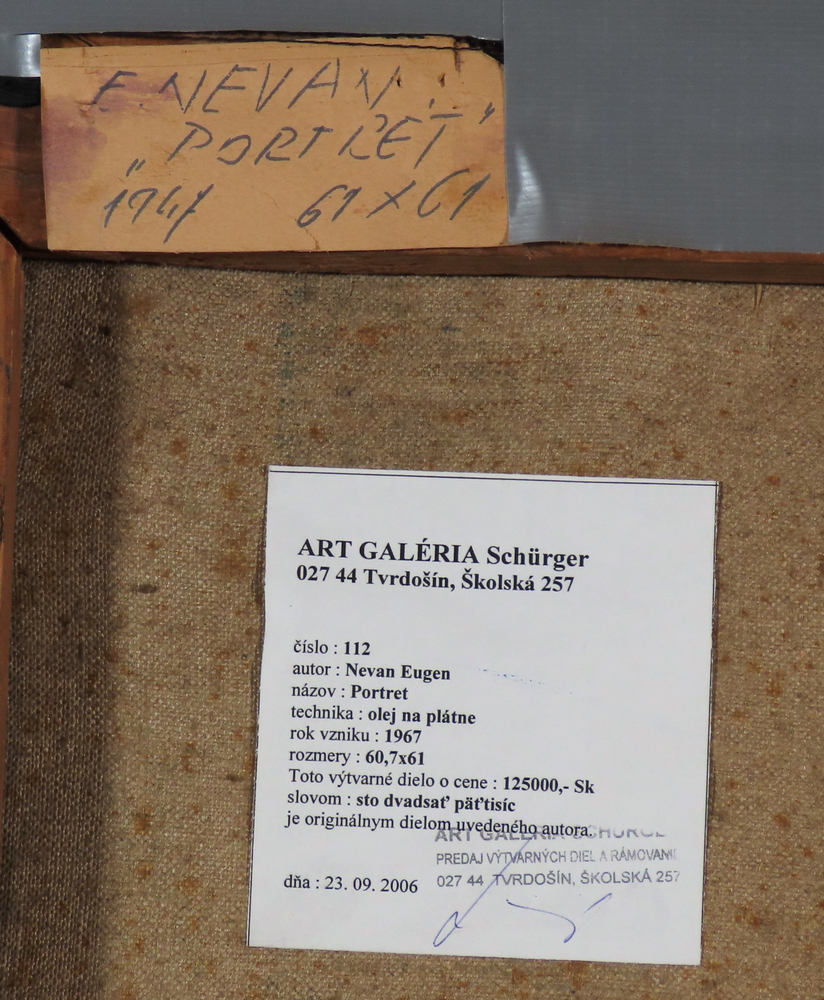 E. NEVAN :
„PORTRET"
1947 61 X 61
ART GALÉRIA Schürger
027 44 Tvrdošín, Školská 257
číslo : 112
autor : Nevan Eugen
názov : Portret
technika : olej na plátne
rok vzniku : 1967
rozmery : 60,7x61
Toto výtvarné dielo o cene : 125000,- Sk
slovom : sto dvadsať päťtisíc
je originálnym dielom uvedeného autora.
ART GALÉRIA SCHÜRGE
PREDAJ VÝTVARNÝCH DIEL A RÁMOVANI
dňa : 23. 09. 2006
027 44 TVRDOŠÍN, ŠKOLSKÁ 257